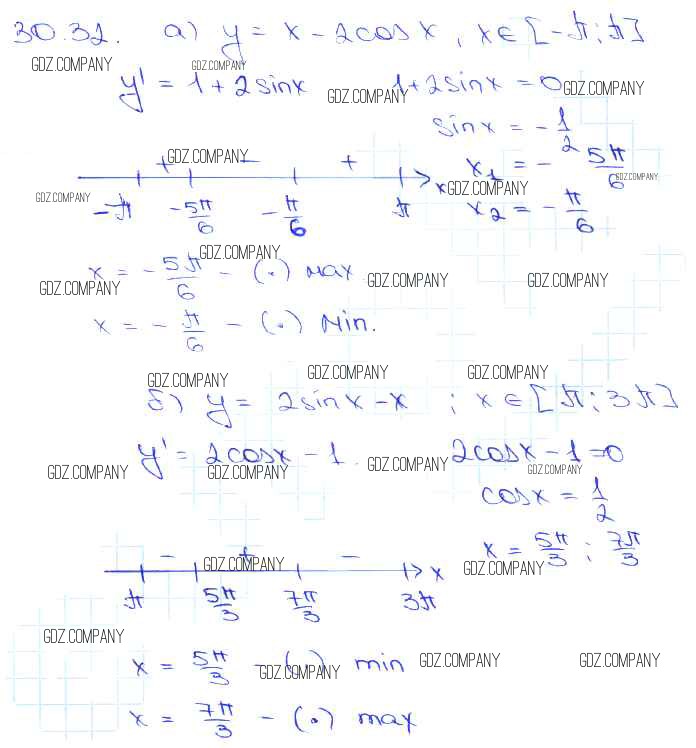 30.32. а) y = x - 2cosx, x ∈ [-π; π]
GDZ.COMPANY GDZ.COMPANY
y' = 1 + 2sinx 1 + 2sinx = 0
GDZ.COMPANY GDZ.COMPANY
sinx = -1/2
+ GDZ.COMPANY - + x₁ = -5π/6
GDZ.COMPANY GDZ.COMPANY
x
GDZ.COMPANY -π -5π/6 -π/6 π x₂ = -π/6
GDZ.COMPANY
x = -5π/6 - (.) max
GDZ.COMPANY GDZ.COMPANY GDZ.COMPANY
x = -π/6 - (.) min.
GDZ.COMPANY GDZ.COMPANY GDZ.COMPANY
б) y = 2sinx - x ; x ∈ [π; 3π]
y' = 2cosx - 1. 2cosx - 1 = 0
GDZ.COMPANY GDZ.COMPANY GDZ.COMPANY GDZ.COMPANY
cosx = 1/2
- + - x = 5π/3 ; 7π/3
GDZ.COMPANY x GDZ.COMPANY
π 5π/3 7π/3 3π
GDZ.COMPANY
x = 5π/3 - (.) min
GDZ.COMPANY GDZ.COMPANY GDZ.COMPANY
x = 7π/3 - (.) max